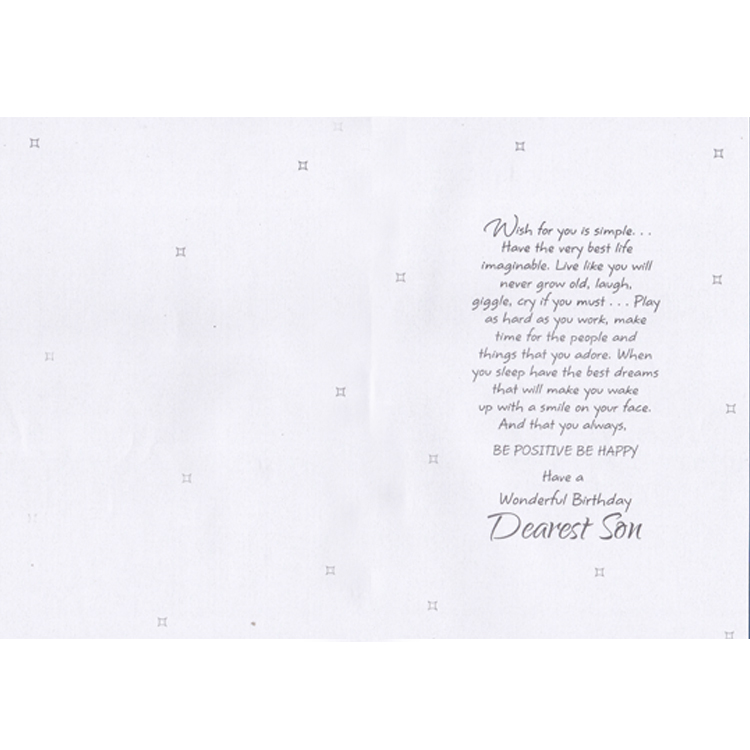 Wish for you is simple. . .
Have the very best life
imaginable. Live like you will
never grow old, laugh,
giggle, cry if you must . . . Play
as hard as you work, make
time for the people and
things that you adore. When
you sleep have the best dreams
that will make you wake
up with a smile on your face.
And that you always,
BE POSITIVE BE HAPPY
Have a
Wonderful Birthday
Dearest Son